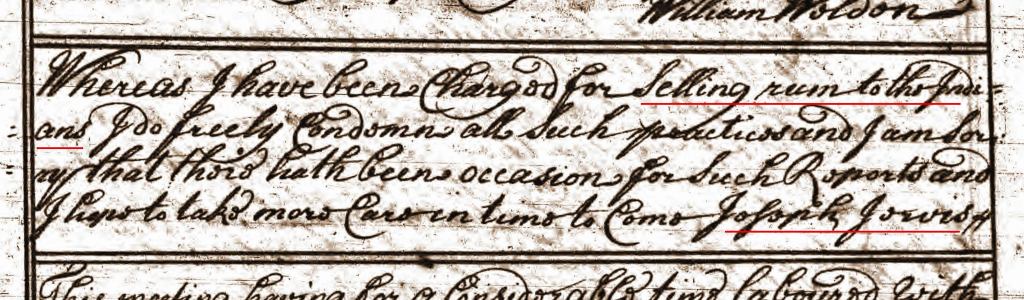 William Woldon
Whereas I have been Charged for Selling rum to the Indi=
ans I do freely Condemn all Such practices and I am Sor=
ry that there hath been occasion for Such Reports and
I hope to take more Care in time to Come Joseph Jervis
This meeting having for a Considerable time laboured with